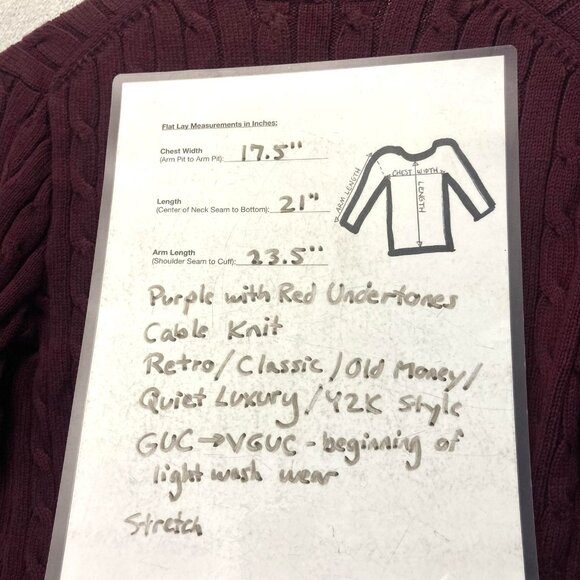 Flat Lay Measurements in Inches:
Chest Width
(Arm Pit to Arm Pit): 17.5"
Length
(Center of Neck Seam to Bottom): 21"
Arm Length
(Shoulder Seam to Cuff): 23.5"
ARM LENGTH
CHEST WIDTH
LENGTH
Purple with Red Undertones
Cable Knit
Retro/Classic/Old Money/
Quiet Luxury/Y2K Style
GUC→VGUC - beginning of
light wash wear
Stretch